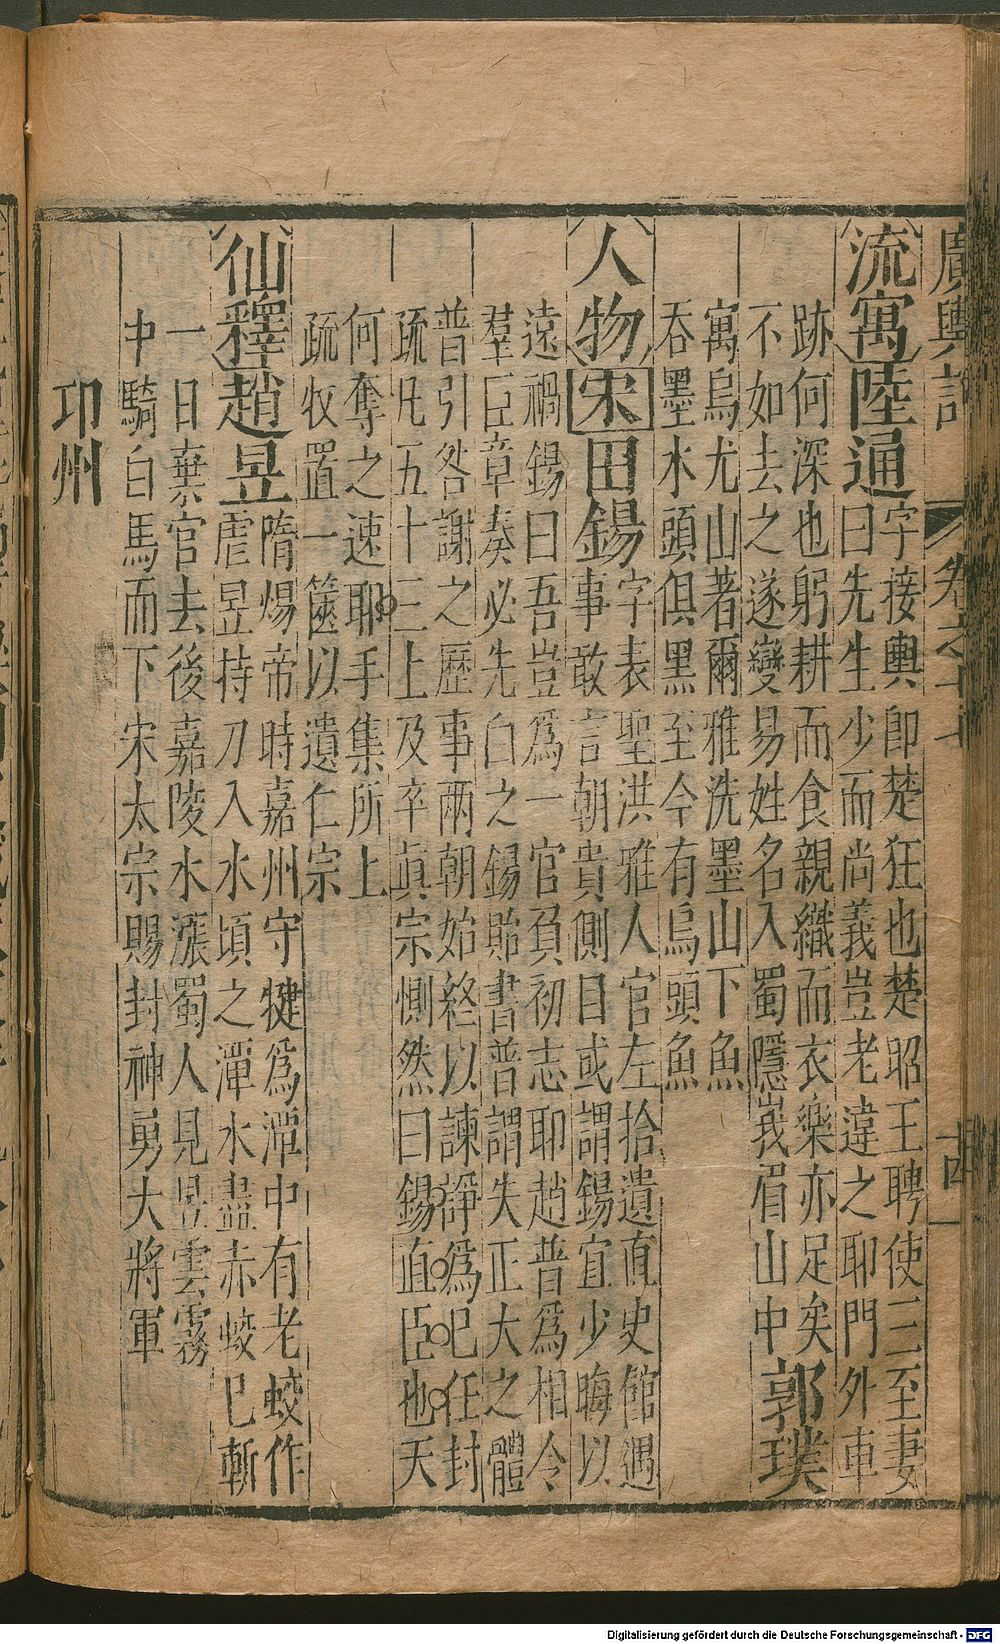 廣輿記 卷之十七 十四
流寓 陸通 字接輿即楚狂也楚昭王聘使三至妻
曰先生少而尚義豈老違之耶門外車
跡何深也躬耕而食親織而衣樂亦足矣
不如去之遂變易姓名入蜀隱峩眉山中 郭璞
寓烏尤山著爾雅洗墨山下魚
吞墨水頭俱黑至今有烏頭魚
人物 宋 田錫 字表聖洪雅人官左拾遺直史館遇
事敢言朝貴側目或謂錫宜少晦以
遠禍錫曰吾豈爲一官負初志耶趙普爲相令
羣臣章奏必先白之錫貽書普謂失正大之體
普引咎謝之歷事兩朝始終以諫諍爲己任封
疏凡五十三上及卒眞宗惻然曰錫直臣也天
何奪之速耶手集所上
疏牧置一篋以遺仁宗
仙釋 趙昱 隋煬帝時嘉州守犍爲潭中有老蛟作
虐昱持刀入水頃之潭水盡赤蛟已斬
一日棄官去後嘉陵水漲蜀人見昱雲霧
中騎白馬而下宋太宗賜封神勇大將軍
邛州
Digitalisierung gefördert durch die Deutsche Forschungsgemeinschaft - DFG